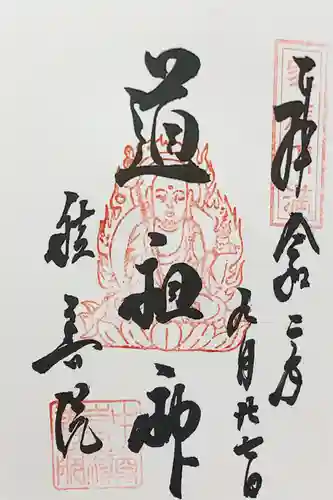 奉拝
令和二年
九月廿七日
道祖神
積善院